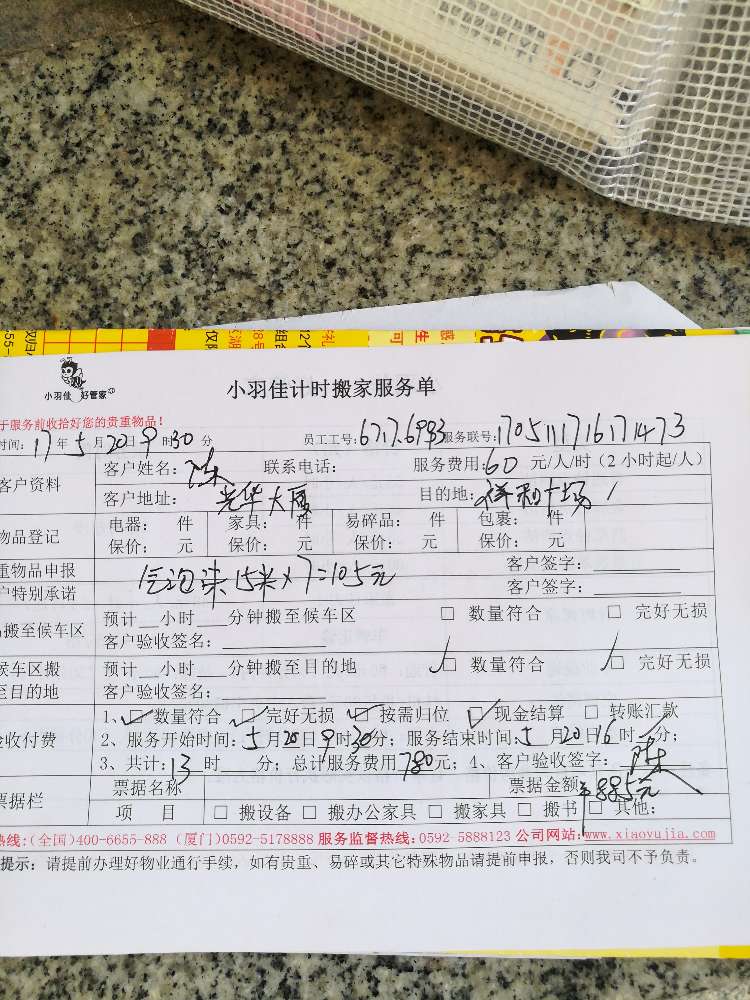 小羽佳 好管家
小羽佳计时搬家服务单
于服务前收拾好您的贵重物品!
时间: 17年5月20日9时30分 员工工号: 服务联号:170511171617147​3
客户资料 客户姓名:陈 联系电话: 服务费用:60 元/人/时(2 小时起/人)
客户地址:光华大厦 目的地:祥和广场
物品登记 电器: 件 家具: 件 易碎品: 件 包裹: 件
保价: 元 保价: 元 保价: 元 保价: 元
重物品申报 客户签字:
户特别承诺 气泡柒15米×7=105元 客户签字:
搬至候车区 预计 小时 分钟搬至候车区 □ 数量符合 □ 完好无损
客户验收签名:
候车区搬 预计 小时 分钟搬至目的地 □ 数量符合 □ 完好无损
至目的地 客户验收签名:
1、□ 数量符合 □ 完好无损 □ 按需归位 □ 现金结算 □ 转账汇款
验收付费 2、服务开始时间:5月20日9时30分; 服务结束时间:5月20日16时 分;
3、共计:13时 分; 总计服务费用780元; 4、客户验收签字:陈
票据栏 票据名称 票据金额¥885元
项 目 □ 搬设备 □ 搬办公家具 □ 搬家具 □ 搬书 □ 其他:
热线:(全国)400-6655-888 (厦门)0592-5178888 服务监督热线:0592-5888123 公司网站:www.xiaoyujia.com
提示: 请提前办理好物业通行手续, 如有贵重、易碎或其它特殊物品请提前申报, 否则我司不予负责。